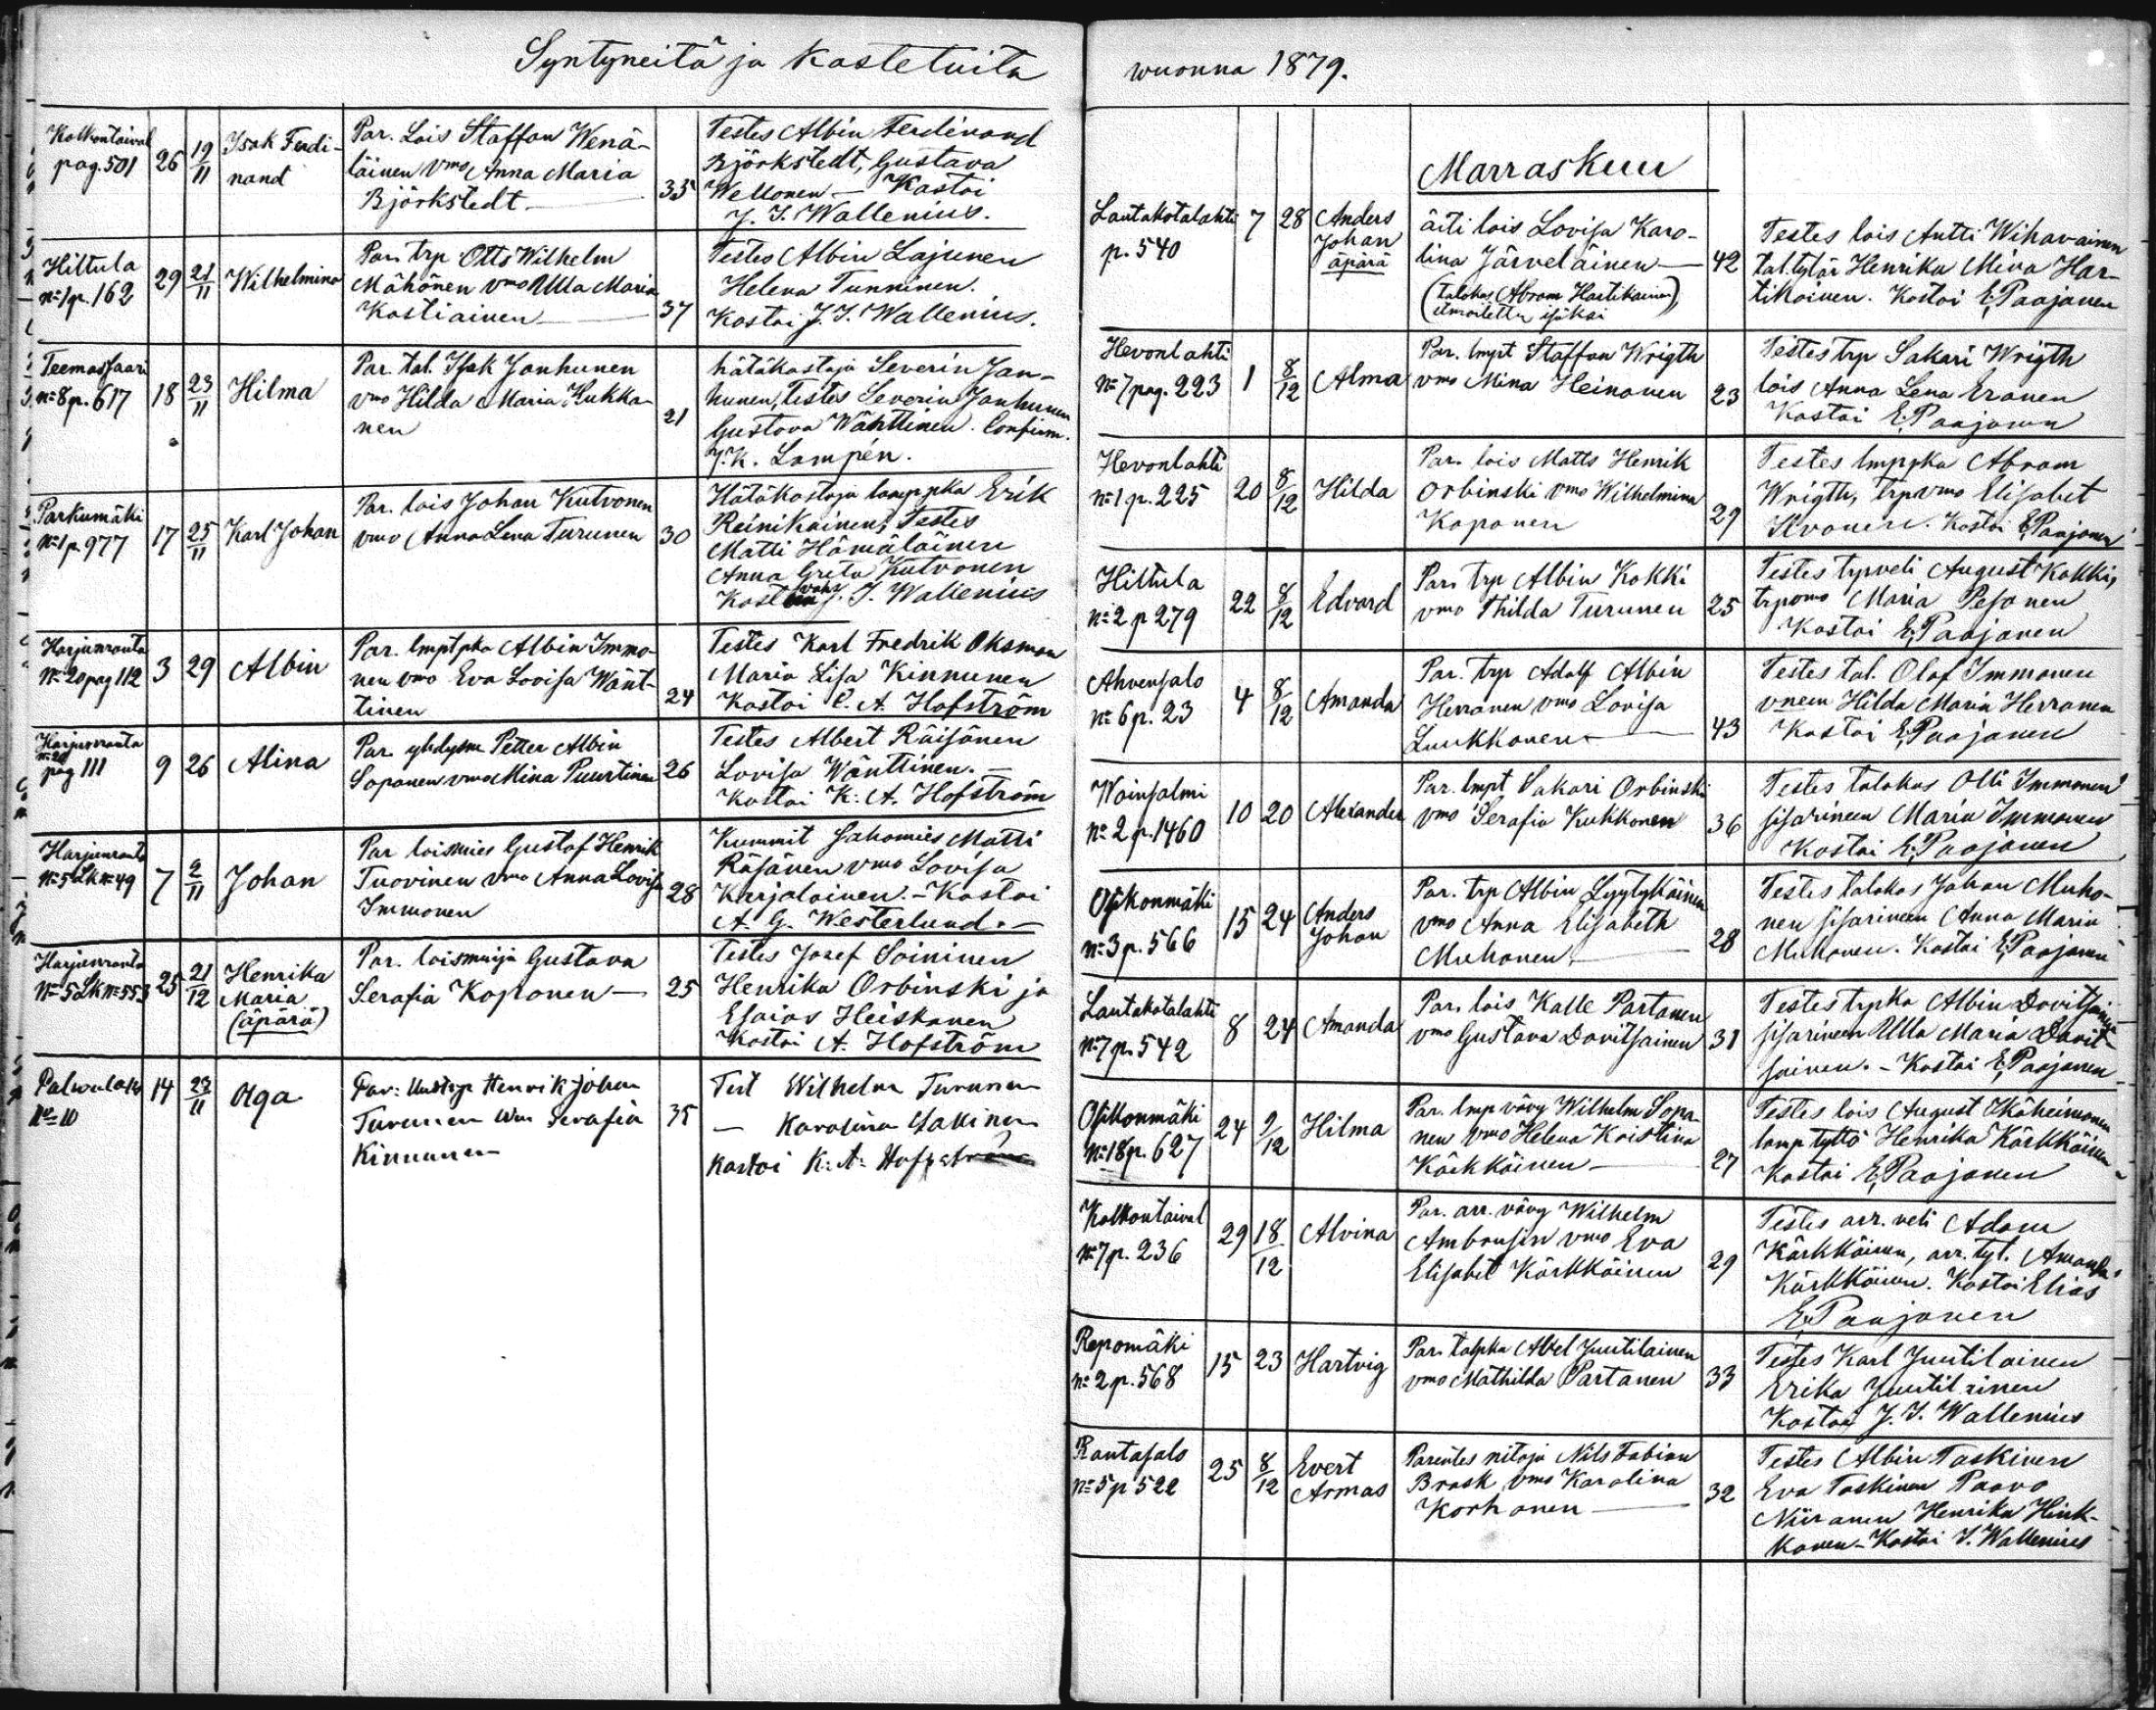 Syntyneitä ja kastetuita
Kolkontaival
pag. 501
26
19/11
Isak Ferdi-
nand
Par. Lois Staffan Wenä-
läinen vmo Anna Maria
Björkstedt
35
Testes Albin Ferdinand
Björkstedt, Gustava
Wellonen - Kastoi
J. I. Wallenius.
Hiltula
No 1 p. 162
29
21/11
Wilhelmina
Par. trp Otto Wilhelm
Mähönen vmo Ulla Maria
Kostiainen
37
Testes Albin Lajunen
Helena Tunninen.
Kastoi J. I. Wallenius.
Teemassaari
No 8 p. 617
18
23/11
Hilma
Par. tal. Isak Janhunen
vmo Hilda Maria Kukko-
nen
21
hätäkastaja Severin Jan-
hunen, Testes Severin Janhunen
Gustava Wänttinen. Confirm.
J. K. Lampén.
Parkumäki
No 1 p. 977
17
25/11
Karl Johan
Par. lois Johan Kutvonen
vmo Anna Lena Turunen
30
Hätäkastaja lamppka Erik
Reinikainen, Testes
Matti Hämäläinen
Anna Greta Kutvonen
vahv.
J. I. Wallenius
Harjunranta
No 20 pag 112
3
29
Albin
Par. lmptpka Albin Immo-
nen vmo Eva Lovisa Wänt-
tinen
24
Testes Karl Fredrik Oksman
Maria Lisa Kinnunen
Kastoi C. A. Hofström
Harjunranta
No 20
pag 111
9
26
Alina
Par. yhdysm Petter Albin
Soponen vmo Mina Puurtinen
26
Testes Albert Räisänen
Lovisa Wänttinen. -
Kastoi K. A. Hofström
Harjunranta
No 5 Lk No 49
7
2/11
Johan
Par loismies Gustaf Henrik
Tuovinen vmo Anna Lovisa
Immonen
28
Kummit sahamies Matti
Räsänen vmo Lovisa
Karjalainen. - Kastoi
A. G. Westerlund. -
Harjunranta
No 5 Lk No 553
25
21/12
Henrika
Maria
(äpärä)
Par. loismuija Gustava
Serafia Koponen
25
Testes Josef Soininen
Henrika Orbinski ja
Esaias Heiskanen
Kastoi A. Hofström
No 10
14
23/11
Olga
Par: Henrik Johan
Turunen Serafia
Kinnunen
35
Test Wilhelm Turunen
- Karolina Makinen
Kastoi K. A. Hofström
wuonna 1879.
Marraskuu
Lautakotalahti
p. 540
7
28
Anders
Johan
äpärä
äiti lois Lovisa Karo-
lina Järveläinen
(talokas Abram Hartikainen,
ilmoitettu isäksi
42
Testes lois Antti Wihavainen
tal. tytär Henrika Miva Har-
tikainen. Kastoi E. Paajanen
Hevonlahti
No 7 pag. 223
1
8/12
Alma
Par. lmpt Staffan Wrigth
vmo Mina Heinonen
23
Testes trp Sakari Wrigth
lois Anna Lena Eronen
Kastoi E. Paajanen
Hevonlahti
No 1 p. 225
20
8/12
Hilda
Par. lois Matts Henrik
Orbinski vmo Wilhelmina
Koponen
29
Testes lmppka Abram
Wrigth, trp vmo Elisabet
Ilvonen. Kastoi E. Paajanen
Hiltula
No 2 p 279
22
8/12
Edvard
Par. trp Albin Kokki
vmo Thilda Turunen
25
Testes trpveli August Kokki,
trpvmo Maria Pesonen
Kastoi E. Paajanen
Ahvensalo
No 6 p. 23
4
8/12
Amanda
Par. trp Adolf Albin
Herranen vmo Lovisa
Luukkonen
43
Testes tal. Olof Immonen
vneen Hilda Maria Herranen
Kastoi E. Paajanen
Woinsalmi
No 2 p. 1460
10
20
Alexander
Par. lmpt Sakari Orbinski
vmo Serafia Kukkonen
36
Testes talokas Olli Immonen
sisarineen Maria Immonen
Kastoi E. Paajanen
Osikonmäki
No 3 p. 566
15
24
Anders
Johan
Par. trp Albin Lyytykäinen
vmo Anna Elisabeth
Muhonen
28
Testes talokas Johan Muho-
nen sisarineen Anna Maria
Muhonen. Kastoi E. Paajanen
Lautakotalahti
No 7 p. 542
8
24
Amanda
Par. lois Kalle Partanen
vmo Gustava Davitsainen
31
Testes trpka Albin Davitsainen
sisarineen Ulla Maria Davit-
sainen. - Kastoi E. Paajanen
Osikonmäki
No 18 p. 627
24
9/12
Hilma
Par. lmp vävy Wilhelm Sopa-
nen vmo Helena Kristina
Kärkkäinen
27
Testes lois August Ikäheimonen
lamp tyttö Henrika Kärkkäinen
Kastoi E. Paajanen
Kolkontaival
No 7 p. 236
29
18/12
Alvina
Par. arr. vävy Wilhelm
Ambrusin vmo Eva
Elisabet Kärkkäinen
29
Testes arr. veli Adam
Kärkkäinen, arr. tyt. Amanda
Kärkkäinen. Kastoi Elias
E. Paajanen
Repomäki
No 2 p. 568
15
23
Hartvig
Par. talpka Abel Juutilainen
vmo Mathilda Partanen
33
Testes Karl Juutilainen
Erika Juutilainen
Kastoi J. I. Wallenius
Rantasalo
No 5 p 522
25
8/12
Evert
Armas
Parentes nitoja Nils Fabian
Brask vmo Karolina
Korhonen
32
Testes Albin Taskinen
Eva Taskinen Paavo
Niiranen Henrika Hink-
konen - Kastoi I. Wallenius